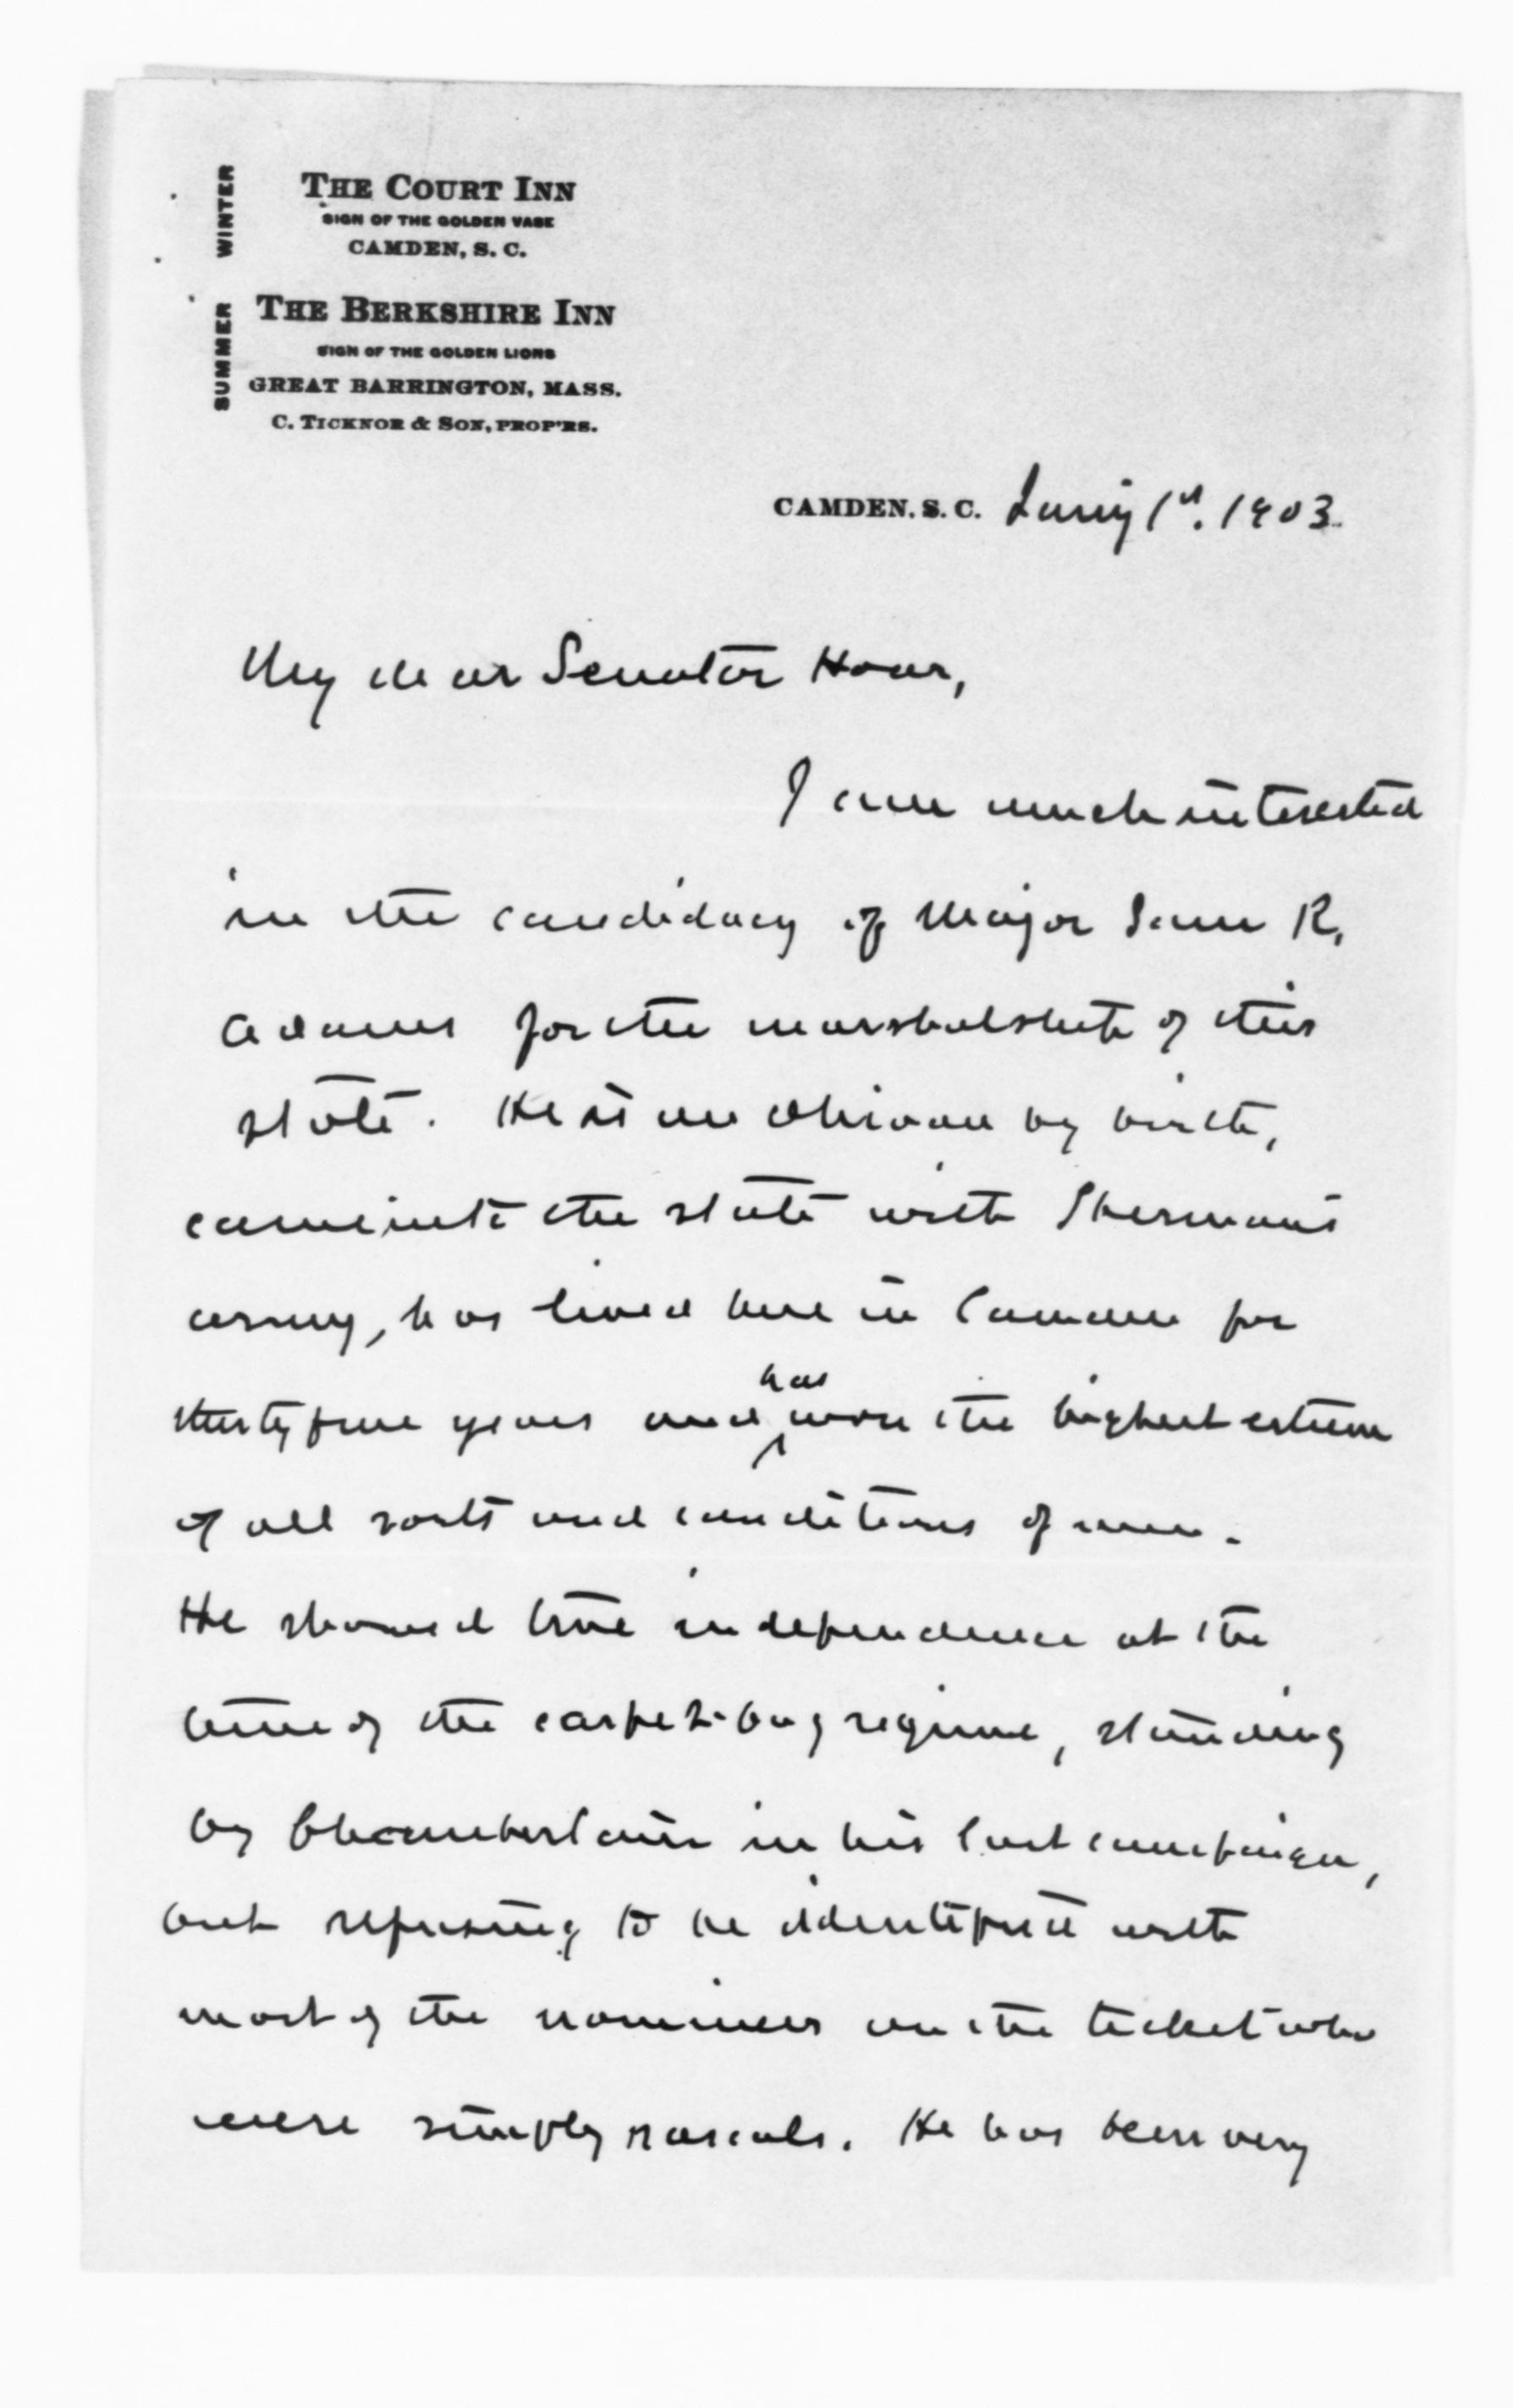 WINTER
THE COURT INN
SIGN OF THE GOLDEN VASE
CAMDEN, S. C.
SUMMER
THE BERKSHIRE INN
SIGN OF THE GOLDEN LIONS
GREAT BARRINGTON, MASS.
C. TICKNOR & SON, PROP'RS.
CAMDEN, S. C. 1st. 1903.
My dear Senator Hoar,
I am much interested
in the candidacy of Major Sam R.
Adams for the marshalship of this
state. He is an Ohioan by birth,
came into the state with Sherman's
army, has lived here in Camden for
thirty five years and has won the highest esteem
of all sorts and conditions of men.
He showed true independence at the
time of the carpet-bag regime, standing
by Chamberlain in his last campaign,
but refusing to be identified with
most of the nominees on the ticket who
were simply rascals. He has been very